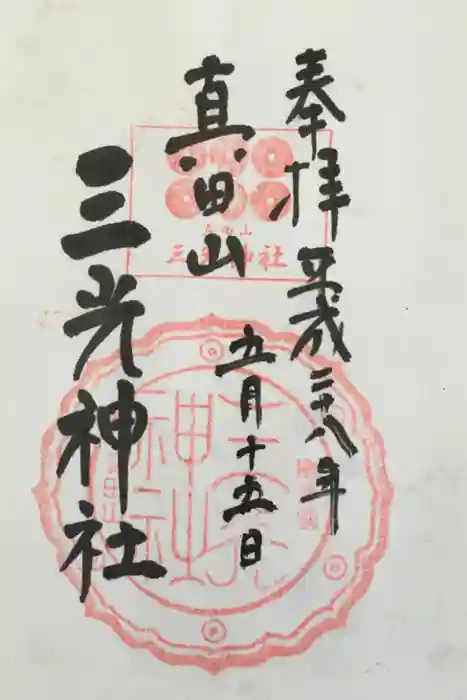 奉拝 平成二十八年
五月十五日
真田山
三光神社
真田山
三光神社
三光
神社